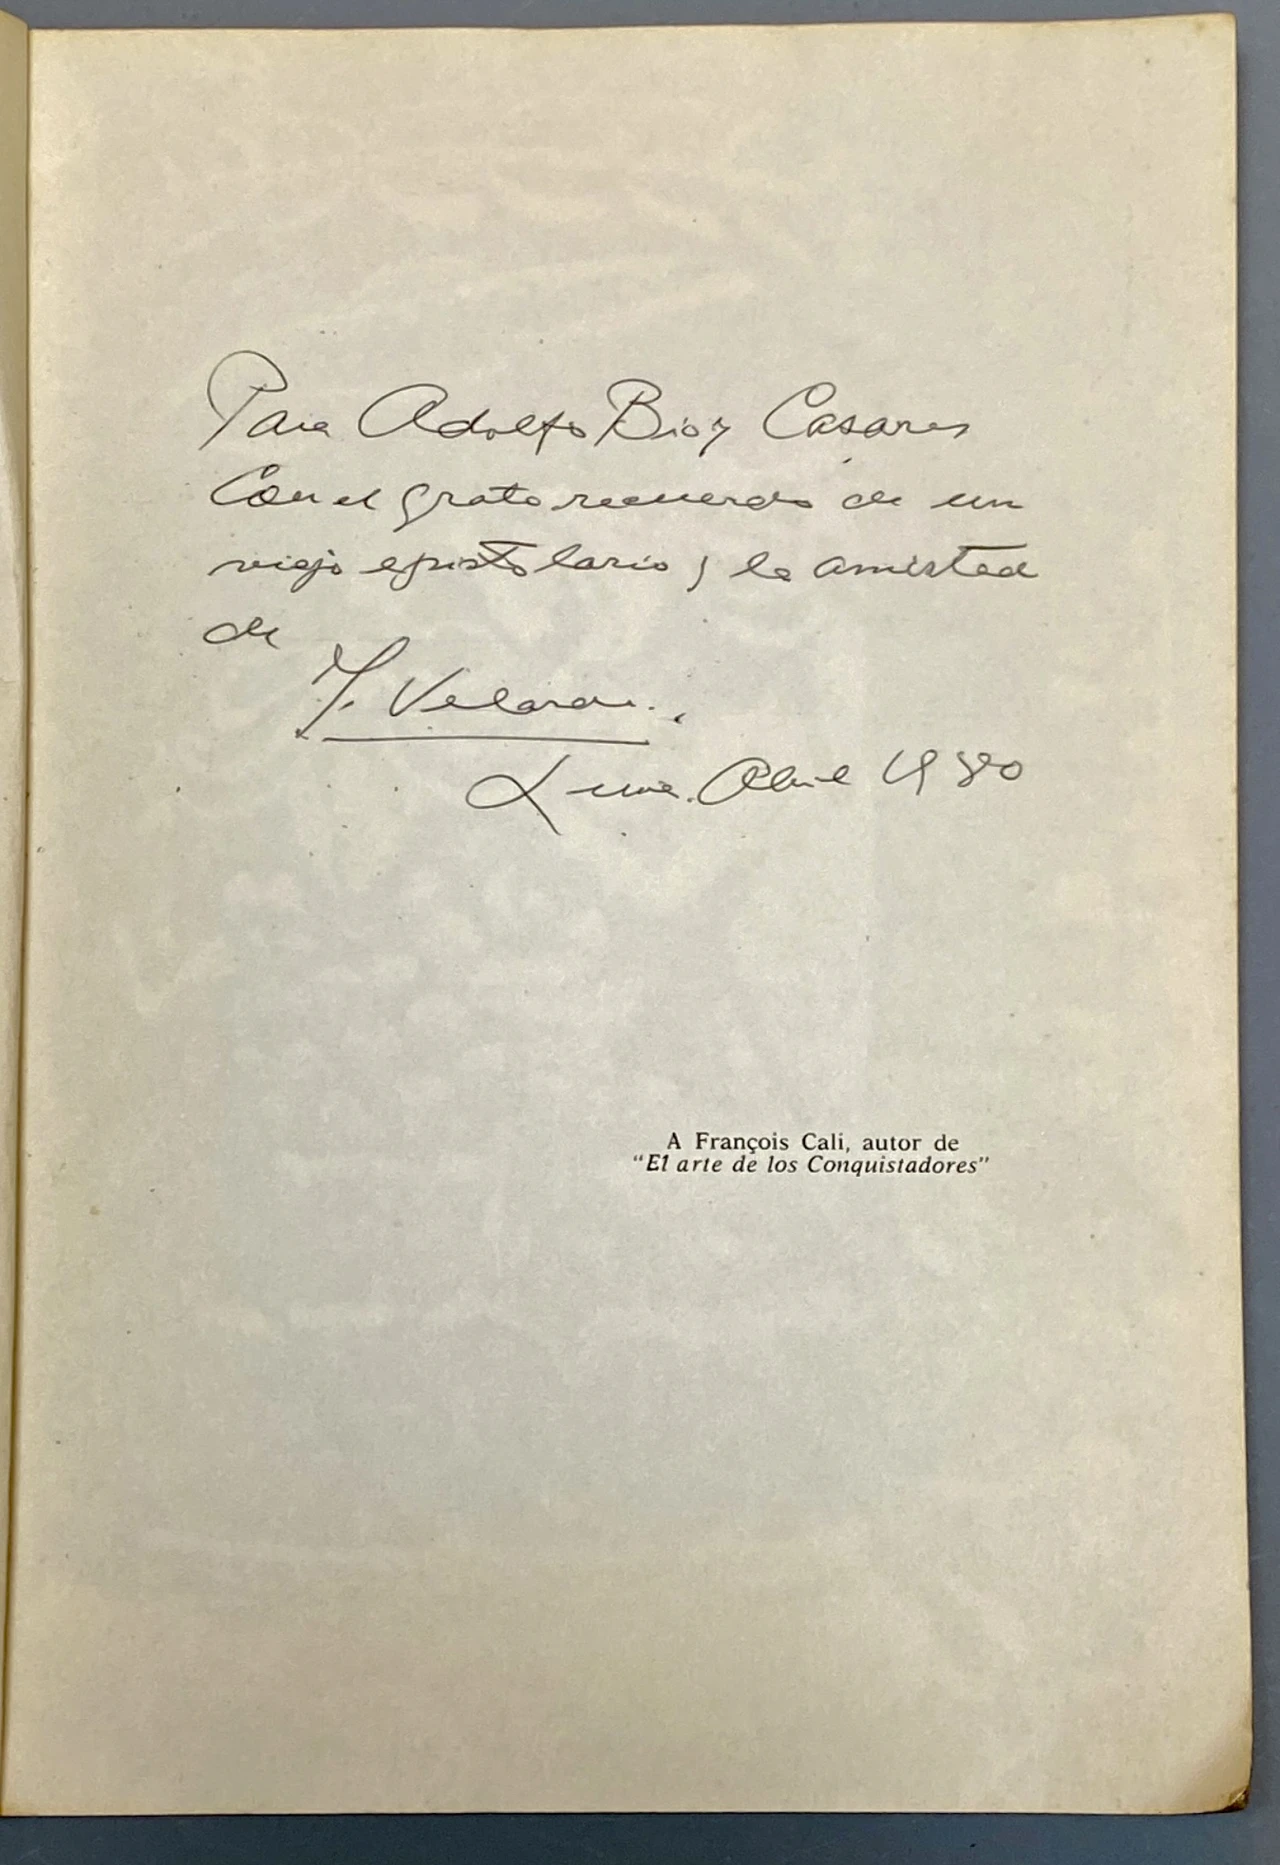 Para Adolfo Bioy Casares
Con el grato recuerdo de un
viejo epistolario y la amistad
de
H. Velarde.
Lima. Abril 1980
A François Cali, autor de
“El arte de los Conquistadores”